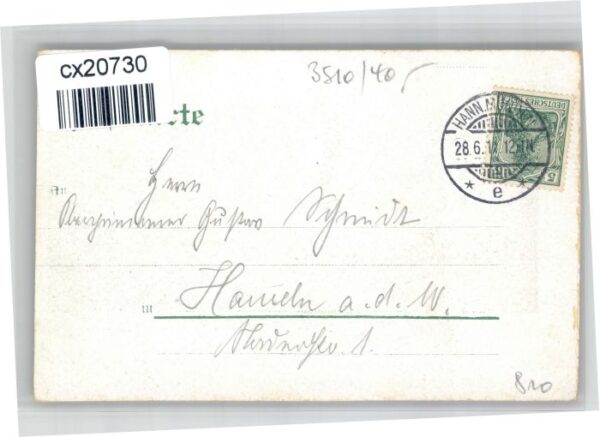 cx20730
3510/40,-
rte
HANN. MÜNDEN
28.6.1 12-1N.
* e *
DEUTSCHES
5
An
Herrn
Gustav Schmidt
in Hameln a. d. W.
1.
810